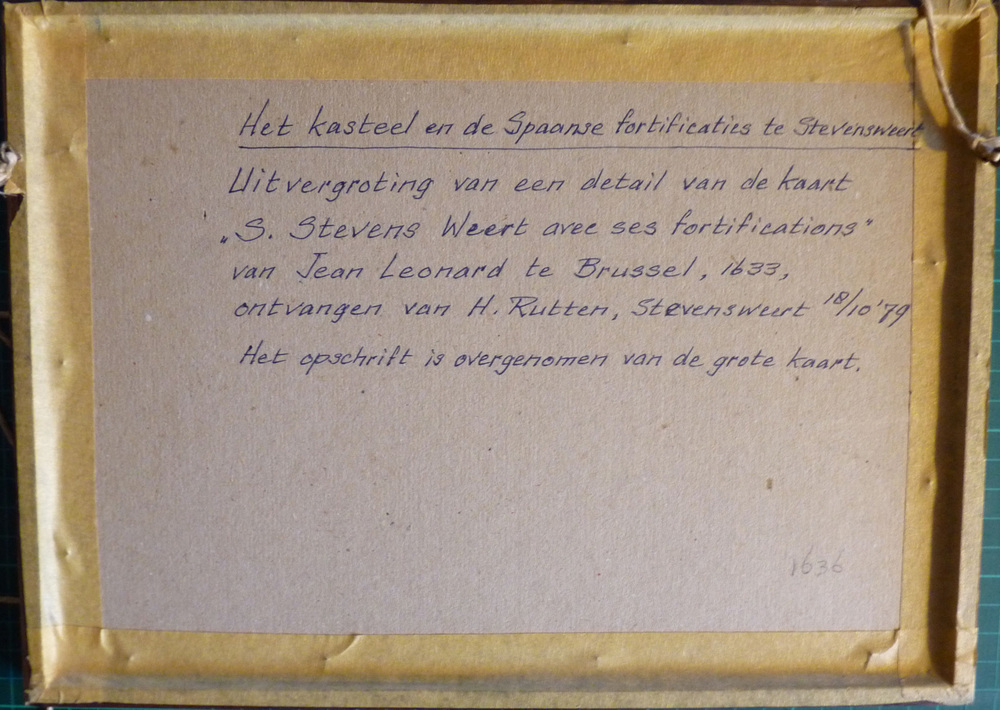 Het kasteel en de Spaanse fortificaties te Stevensweert
Uitvergroting van een detail van de kaart
„S. Stevens Weert avec ses fortifications"
van Jean Leonard te Brussel, 1633,
ontvangen van H. Rutten, Stevensweert 18/10 '79
Het opschrift is overgenomen van de grote kaart.
1636